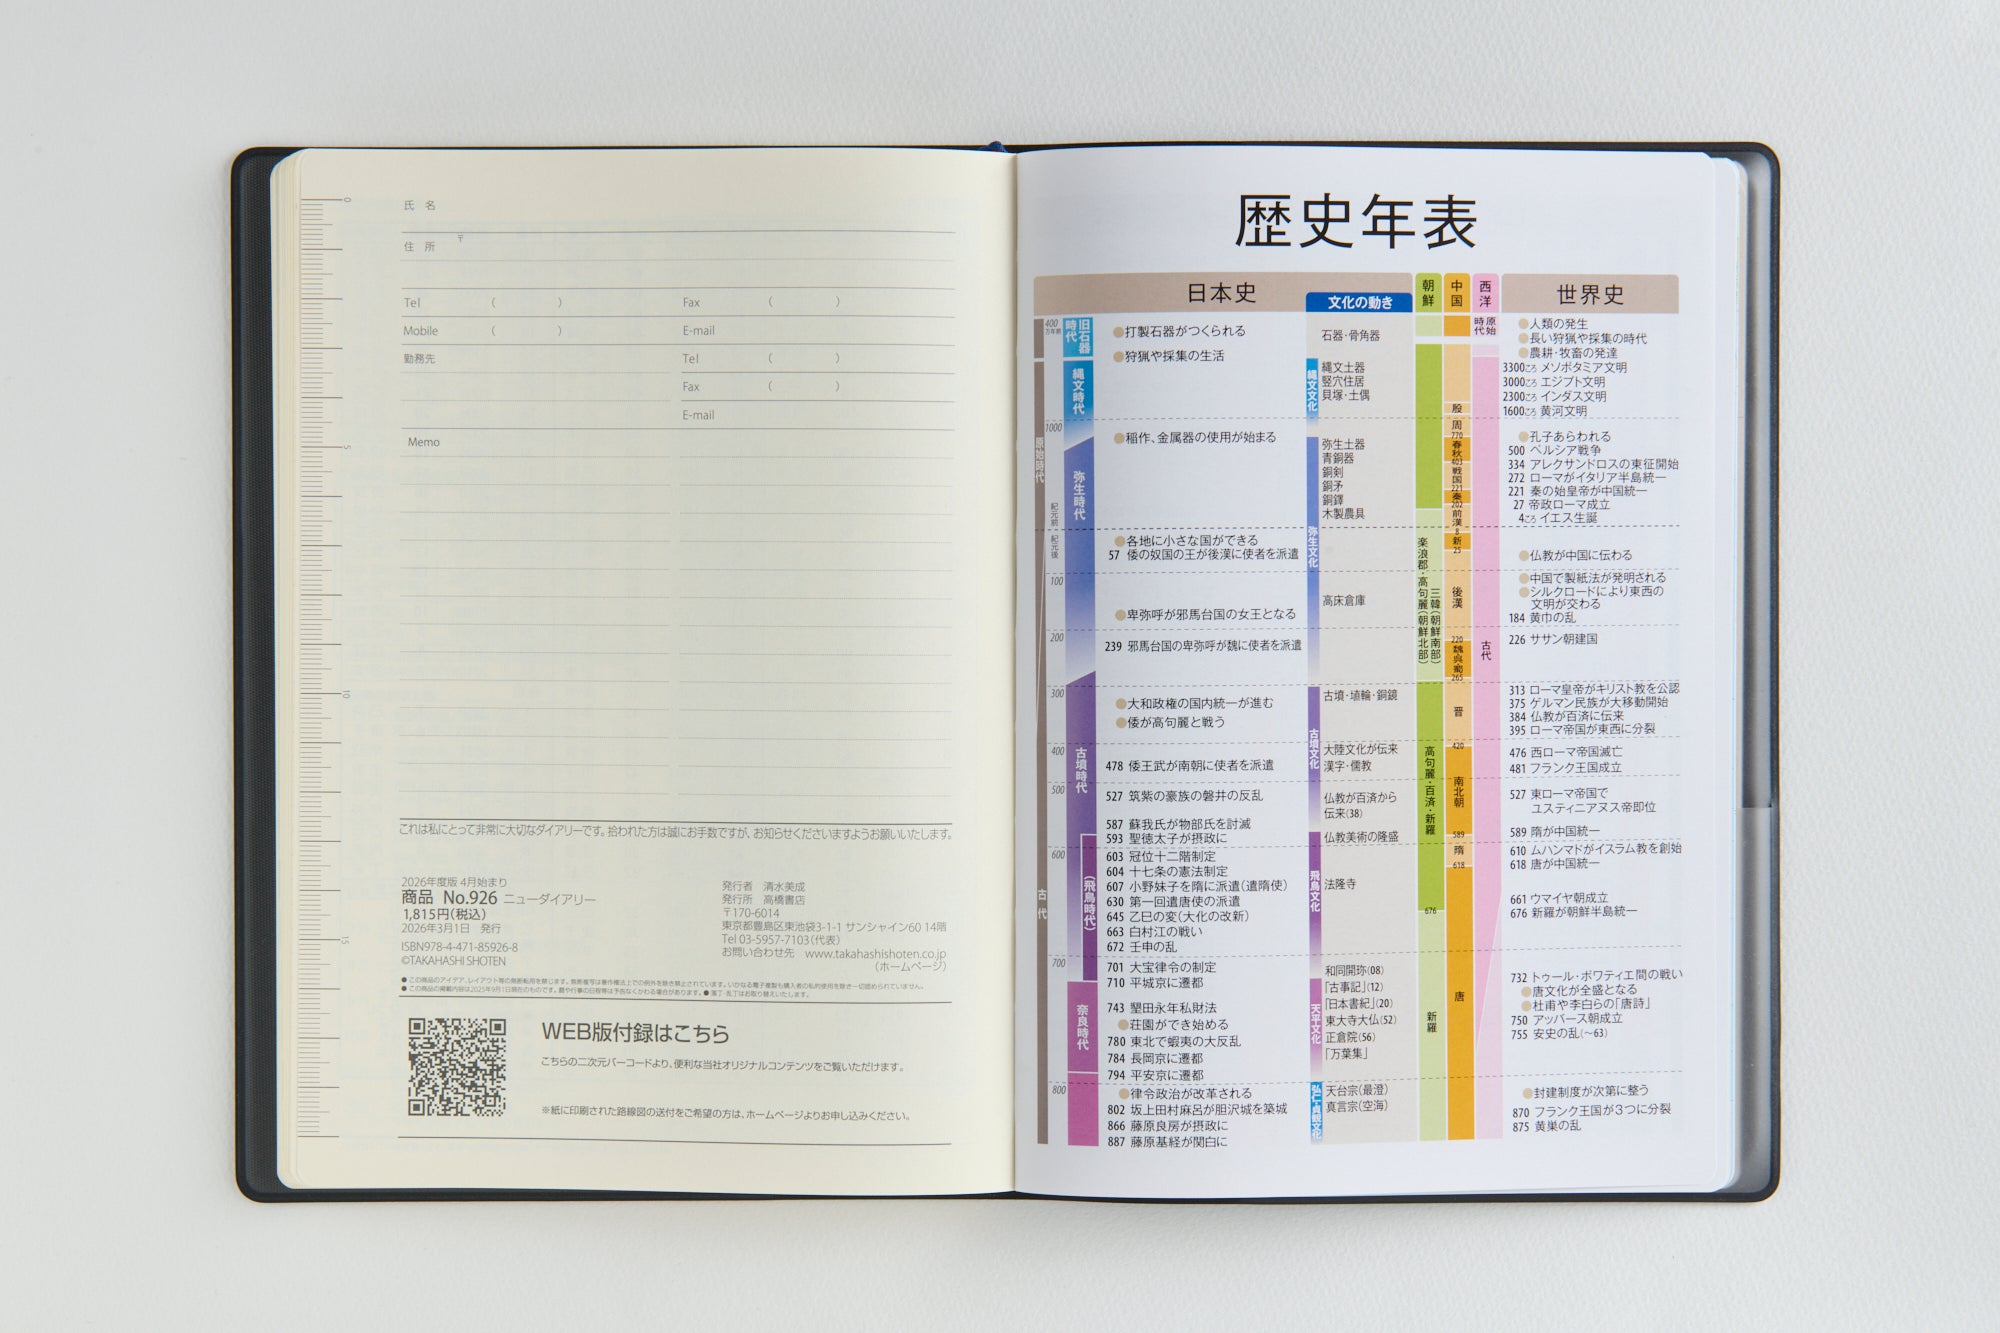 0
5
10
15
氏 名
住 所 〒
Tel ( ) Fax ( )
Mobile ( ) E-mail
勤務先 Tel ( )
Fax ( )
E-mail
Memo
これは私にとって非常に大切なダイアリーです。拾われた方は誠にお手数ですが、お知らせくださいますようお願いいたします。
2026年度版 4月始まり
商品 No.926 ニューダイアリー
1,815円(税込)
2026年3月1日 発行
ISBN978-4-471-85926-8
©TAKAHASHI SHOTEN
発行者 清水美成
発行所 高橋書店
〒170-6014
東京都豊島区東池袋3-1-1 サンシャイン60 14階
Tel 03-5957-7103(代表)
お問い合わせ先 www.takahashishoten.co.jp
(ホームページ)
● この商品のアイデア、レイアウト等の無断転用を禁じます。無断複写は著作権法上での例外を除き禁止されています。いかなる電子複製も購入者の私的使用を除き一切認められていません。
● この商品の掲載内容は2025年9月1日現在のものです。暦や行事の日程等は予告なくかわる場合があります。● 落丁・乱丁はお取り替えいたします。
WEB版付録はこちら
こちらの二次元バーコードより、便利な当社オリジナルコンテンツをご覧いただけます。
※紙に印刷された路線図の送付をご希望の方は、ホームページよりお申し込みください。
歴史年表
日本史
文化の動き
朝鮮
中国
西洋
世界史
400
万年前
1000
紀元前
紀元後
100
200
300
400
500
600
700
800
原始時代
古代
旧石器時代
縄文時代
弥生時代
古墳時代
(飛鳥時代)
奈良時代
●打製石器がつくられる
●狩猟や採集の生活
●稲作、金属器の使用が始まる
●各地に小さな国ができる
57 倭の奴国の王が後漢に使者を派遣
●卑弥呼が邪馬台国の女王となる
239 邪馬台国の卑弥呼が魏に使者を派遣
●大和政権の国内統一が進む
●倭が高句麗と戦う
478 倭王武が南朝に使者を派遣
527 筑紫の豪族の磐井の反乱
587 蘇我氏が物部氏を討滅
593 聖徳太子が摂政に
603 冠位十二階制定
604 十七条の憲法制定
607 小野妹子を隋に派遣(遣隋使)
630 第一回遣唐使の派遣
645 乙巳の変(大化の改新)
663 白村江の戦い
672 壬申の乱
701 大宝律令の制定
710 平城京に遷都
743 墾田永年私財法
●荘園ができ始める
780 東北で蝦夷の大反乱
784 長岡京に遷都
794 平安京に遷都
●律令政治が改革される
802 坂上田村麻呂が胆沢城を築城
866 藤原良房が摂政に
887 藤原基経が関白に
縄文文化
弥生文化
古墳文化
飛鳥文化
天平文化
弘仁・貞観文化
石器・骨角器
縄文土器
竪穴住居
貝塚・土偶
弥生土器
青銅器
銅剣
銅矛
銅鐸
木製農具
高床倉庫
古墳・埴輪・銅鏡
大陸文化が伝来
漢字・儒教
仏教が百済から
伝来(38)
仏教美術の隆盛
法隆寺
和同開珎(08)
「古事記」(12)
「日本書紀」(20)
東大寺大仏(52)
正倉院(56)
「万葉集」
天台宗(最澄)
真言宗(空海)
楽浪郡・高句麗(朝鮮北部)
三韓(朝鮮南部)
高句麗・百済・新羅
676
新羅
殷
周
770
春秋
403
戦国
221
秦
202
前漢
8
新
25
後漢
220
魏呉蜀
265
晋
420
南北朝
589
隋
618
唐
原始時代
古代
●人類の発生
●長い狩猟や採集の時代
●農耕・牧畜の発達
3300ころ メソポタミア文明
3000ころ エジプト文明
2300ころ インダス文明
1600ころ 黄河文明
●孔子あらわれる
500 ペルシア戦争
334 アレクサンドロスの東征開始
272 ローマがイタリア半島統一
221 秦の始皇帝が中国統一
27 帝政ローマ成立
4ころ イエス生誕
●仏教が中国に伝わる
●中国で製紙法が発明される
●シルクロードにより東西の
文明が交わる
184 黄巾の乱
226 ササン朝建国
313 ローマ皇帝がキリスト教を公認
375 ゲルマン民族が大移動開始
384 仏教が百済に伝来
395 ローマ帝国が東西に分裂
476 西ローマ帝国滅亡
481 フランク王国成立
527 東ローマ帝国で
ユスティニアヌス帝即位
589 隋が中国統一
610 ムハンマドがイスラム教を創始
618 唐が中国統一
661 ウマイヤ朝成立
676 新羅が朝鮮半島統一
732 トゥール・ポワティエ間の戦い
●唐文化が全盛となる
●杜甫や李白らの「唐詩」
750 アッバース朝成立
755 安史の乱(～63)
●封建制度が次第に整う
870 フランク王国が3つに分裂
875 黄巣の乱